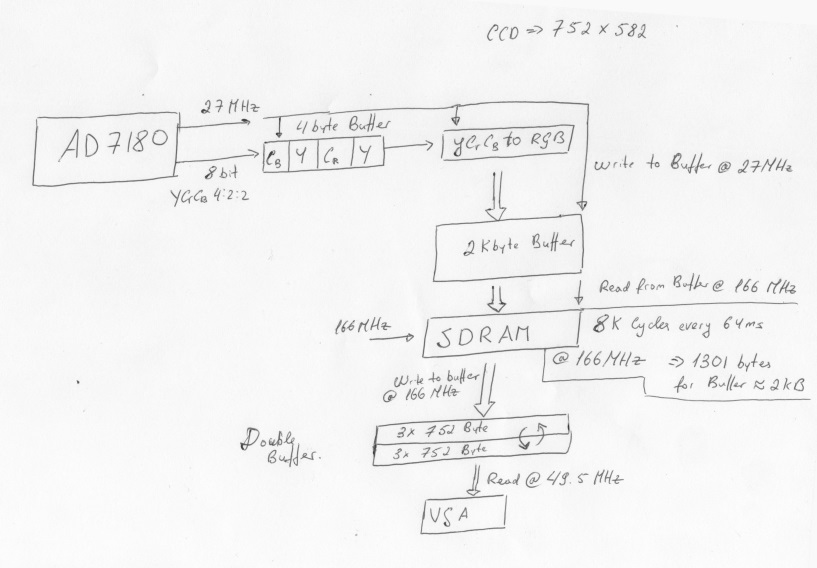 CCD => 752 x 582
27 MHz
AD7180
4 byte Buffer
CB Y CR Y
YCrCB to RGB
8 bit
YCrCB 4:2:2
Write to Buffer @ 27MHz
2 Kbyte Buffer
Read from Buffer @ 166 MHz
166 MHz
SDRAM
8K Cycles every 64ms
@ 166MHz => 1301 bytes
for Buffer ≈ 2kB
Write to buffer
@ 166 MHz
Double
Buffer.
3x 752 Byte
3x 752 Byte
Read @ 49.5 MHz
VGA